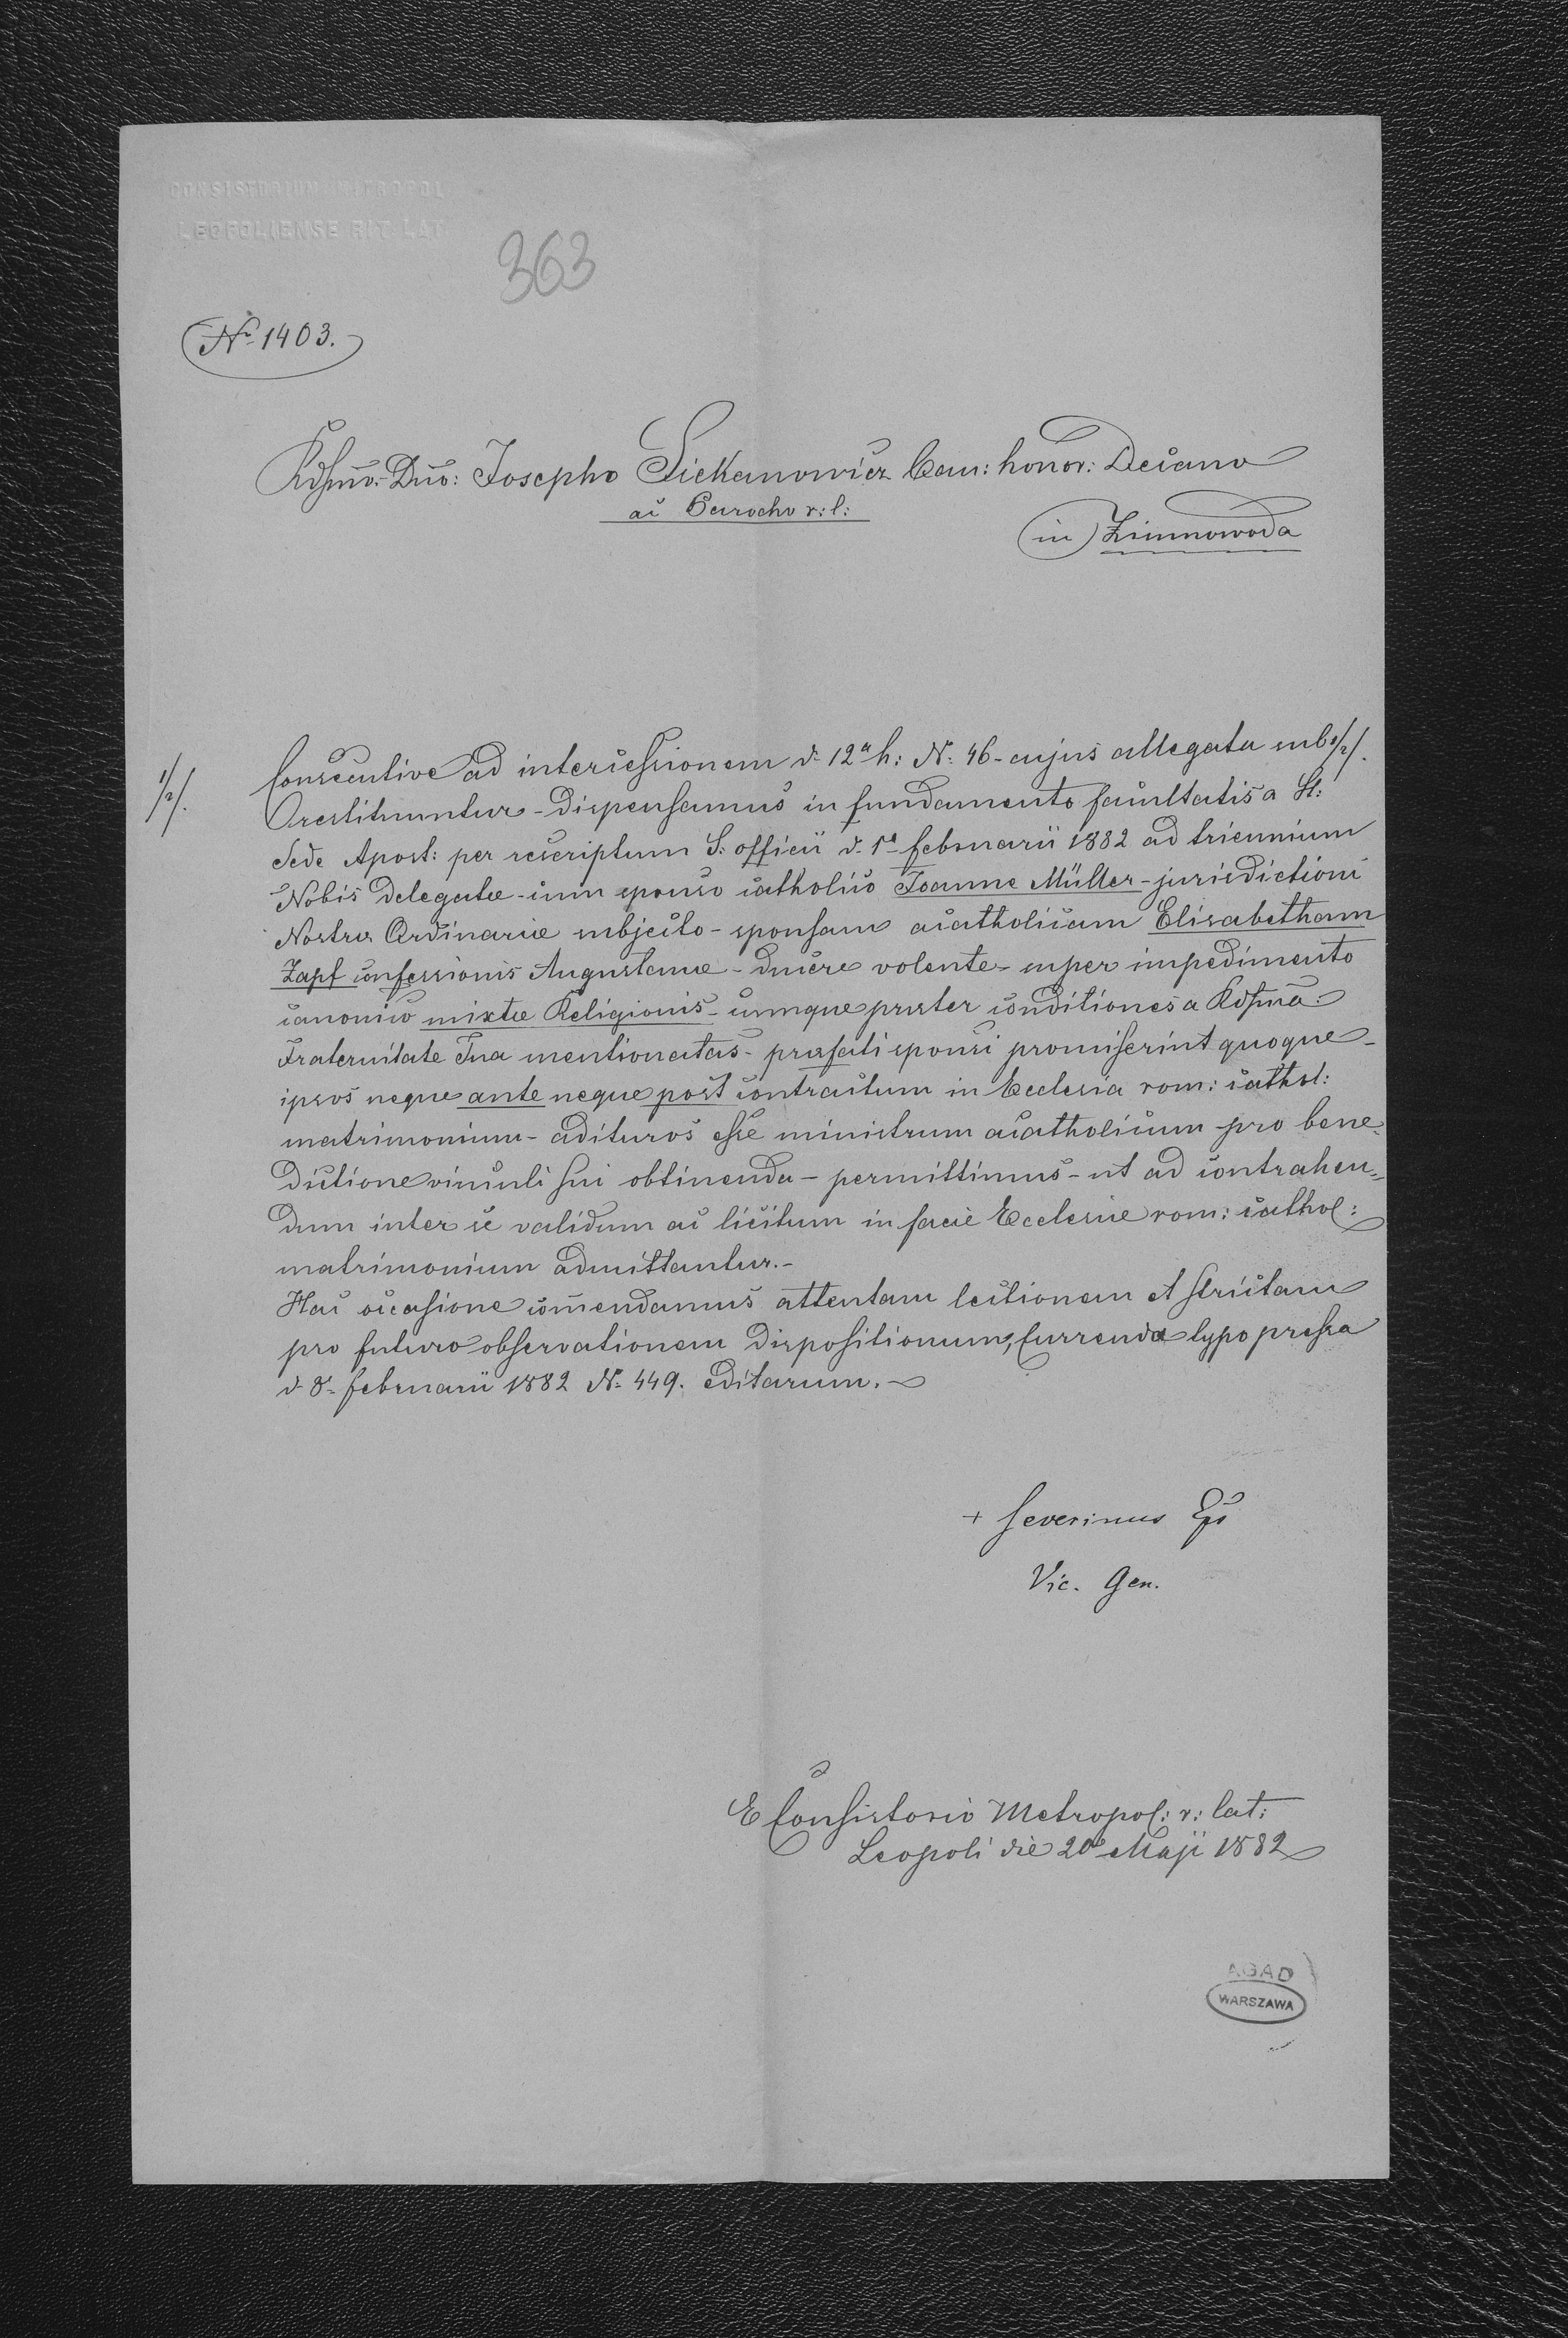 CONSISTORIUM METROPOL
LEOPOLIENSE RIT. LAT.
363
Nr 1403.
Rdsmo. Dno: Josepho Siekanowicz Can: honor: Decano
ac Parocho r: l:
in Zimnowoda
1/2/. Consecutive ad intercessionem d. 12ª h: N: 46 - cujus allegata sub 1/2/.
restituuntur - dispensamus in fundamento facultatis a St:
Sede Apost: per rescriptum S: officii d. 1ª februarii 1882 ad triennium
Nobis delegatæ - cum sponso catholico Joanne Müller - jurisdictioni
Nostræ Ordinariæ subjecto - sponsam acatholicam Elisabetham
Zapf confessionis Augustanæ - ducere volente - super impedimento
canonico mixtæ Religionis - cumque præter conditiones a Rdsma:
Fraternitate Tua mentionatas - præfati sponsi promiserint quoque -
ipsos neque ante neque post contractum in Ecclesia rom: cathol:
matrimonium - adituros esse ministrum acatholicum - pro bene-
dictione vinculi sui obtinenda - permittimus - ut ad contrahen-
dum inter se validum ac licitum in facie Ecclesiæ rom: cathol:
matrimonium admittantur. -
Hac occasione commendamus attentam lectionem et strictam
pro futuro observationem dispositionum, Currenda typo pressa
d. 8. februarii 1882 N: 449. editarum. -
+ Severinus Eps
Vic. Gen.
E Consistorio Metropol: r: lat:
Leopoli die 20 Maji 1882
AGAD
WARSZAWA